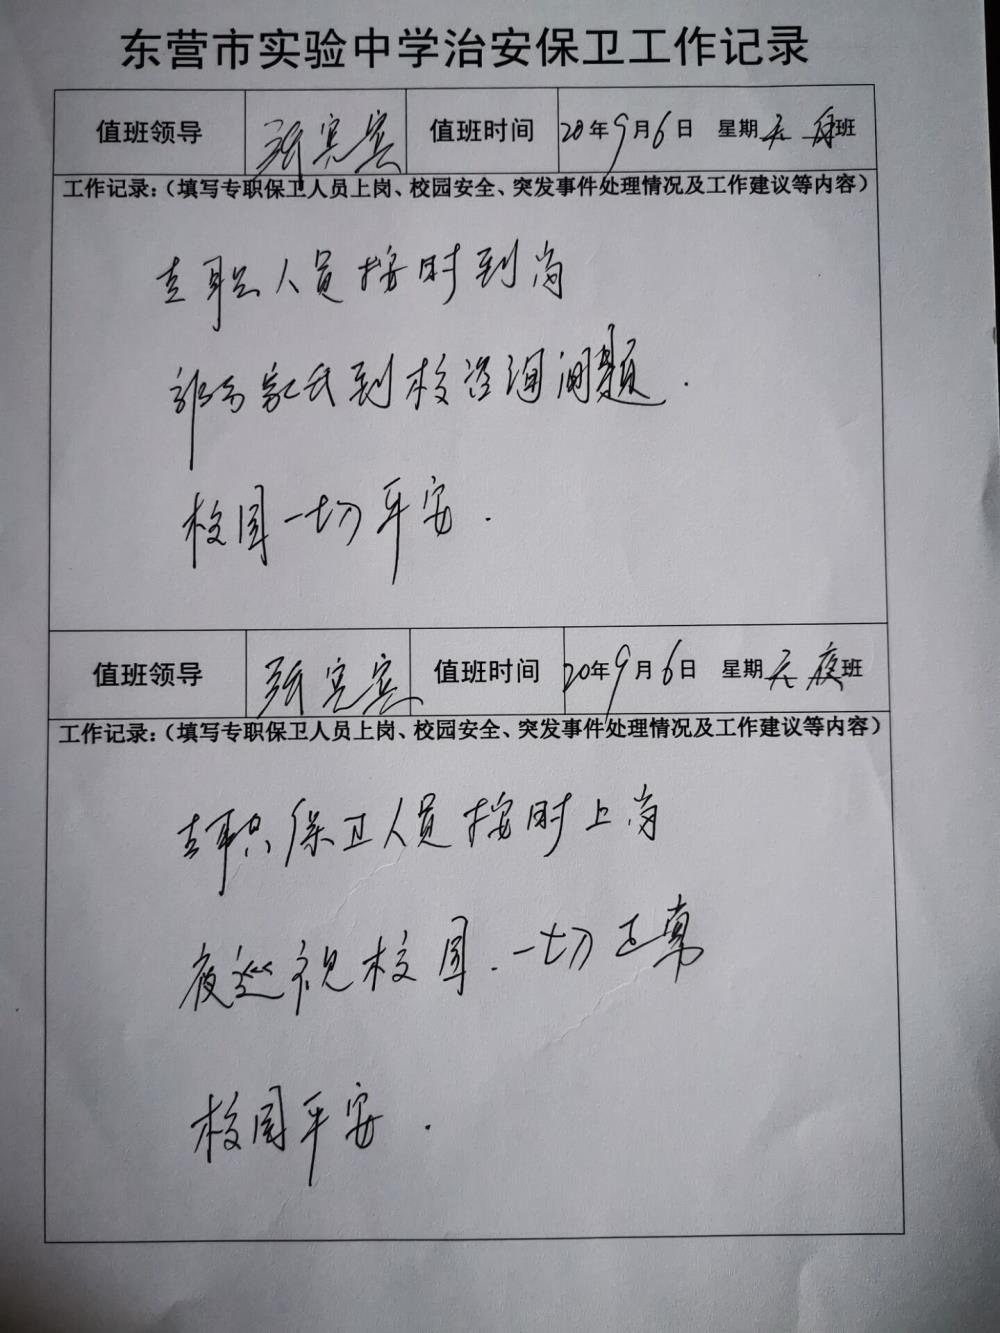 东营市实验中学治安保卫工作记录
值班领导 张宾宾 值班时间 20年9月6日 星期天 班
工作记录：（填写专职保卫人员上岗、校园安全、突发事件处理情况及工作建议等内容）
专职人员按时到岗
部分家长到校咨询问题.
校园一切平安.
值班领导 张宾宾 值班时间 20年9月6日 星期天 夜班
工作记录：（填写专职保卫人员上岗、校园安全、突发事件处理情况及工作建议等内容）
专职保卫人员按时上岗
夜巡视校园.一切正常
校园平安.